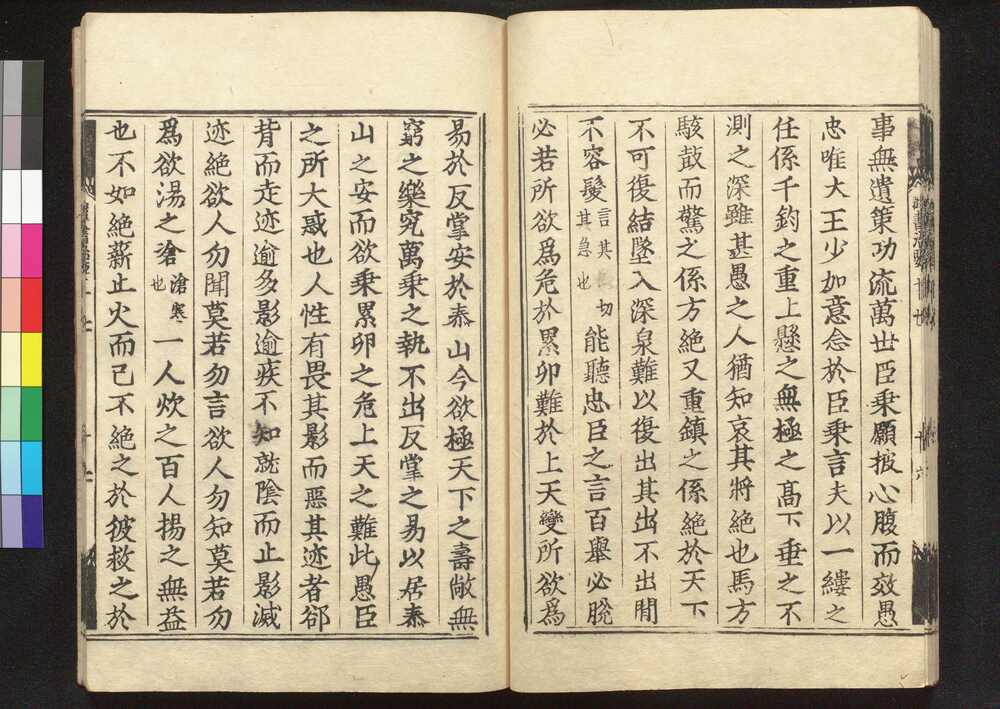 事無遺策功流萬世臣乗願披心腹而效愚
忠唯大王少加意念於臣乗言夫以一縷之
任係千鈞之重上懸之無極之髙下垂之不
測之深雖甚愚之人猶知哀其將絶也馬方
駭鼓而驚之係方絶又重鎮之係絶於天下
不可復結墜入深泉難以復出其出不出閒
不容髮言其切其急也能聽忠臣之言百舉必脫
必若所欲爲危於累卵難於上天變所欲爲
易於反掌安於泰山今欲極天下之壽敞無
窮之樂究萬乗之埶不出反掌之易以居泰
山之安而欲乗累卵之危上天之難此愚臣
之所大惑也人性有畏其影而惡其迹者郤
背而走迹逾多影逾疾不知就陰而止影滅
迹絶欲人勿聞莫若勿言欲人勿知莫若勿
爲欲湯之滄滄寒也一人炊之百人揚之無益
也不如絶薪止火而已不絶之於彼救之於